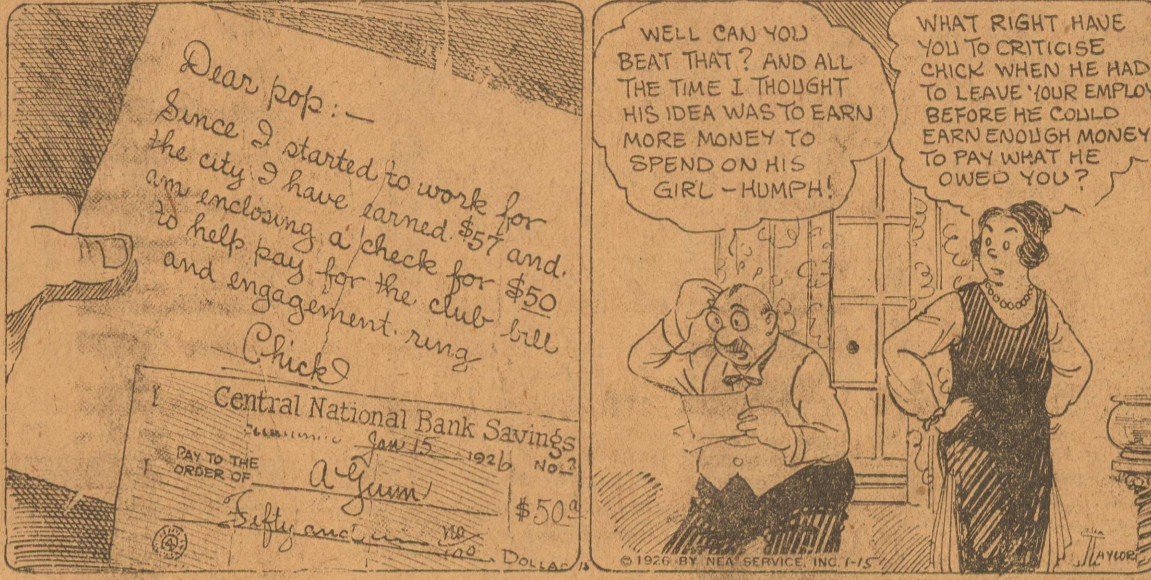 Dear pop:—
Since I started to work for
the city I have earned $57 and
am enclosing a check for $50
to help pay for the club bill
and engagement ring
Chick
Central National Bank Savings
Jan 15 1926 No.
PAY TO THE
ORDER OF A Gunn
$50
Fifty and no/100
DOLLA
WELL CAN YOU
BEAT THAT? AND ALL
THE TIME I THOUGHT
HIS IDEA WAS TO EARN
MORE MONEY TO
SPEND ON HIS
GIRL – HUMPH!
WHAT RIGHT HAVE
YOU TO CRITICISE
CHICK WHEN HE HAD
TO LEAVE YOUR EMPLOY
BEFORE HE COULD
EARN ENOUGH MONEY
TO PAY WHAT HE
OWED YOU?
© 1926 BY NEA SERVICE, INC. 1-15
TAYLOR